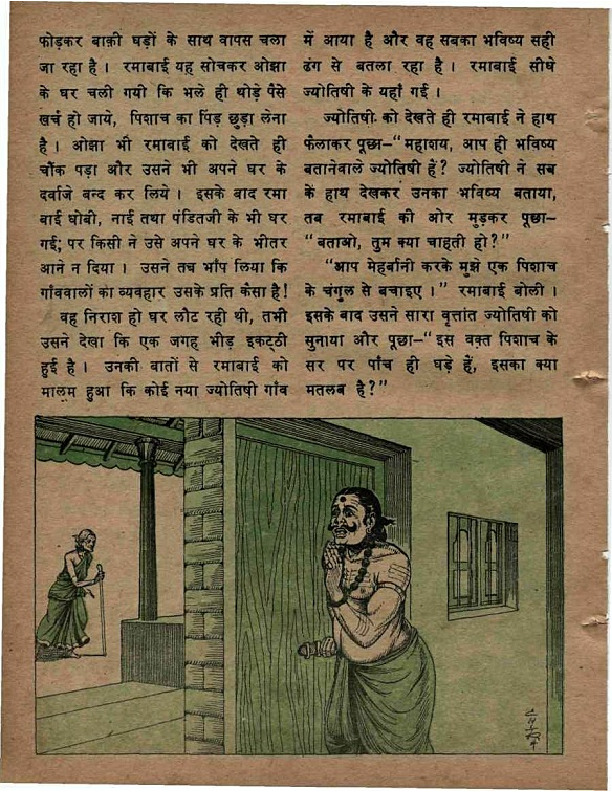 फोड़कर बाक़ी घड़ों के साथ वापस चला
जा रहा है। रमाबाई यह सोचकर ओझा
के घर चली गयी कि भले ही थोड़े पैसे
खर्च हो जाये, पिशाच का पिंड़ छुड़ा लेना
है। ओझा भी रमाबाई को देखते ही
चौंक पड़ा और उसने भी अपने घर के
दर्वाजे बन्द कर लिये। इसके बाद रमा
बाई धोबी, नाई तथा पंडितजी के भी घर
गई; पर किसी ने उसे अपने घर के भीतर
आने न दिया। उसने तब भाँप लिया कि
गाँववालों का व्यवहार उसके प्रति कैसा है!
वह निराश हो घर लौट रही थी, तभी
उसने देखा कि एक जगह भीड़ इकट्ठी
हुई है। उनकी बातों से रमाबाई को
मालूम हुआ कि कोई नया ज्योतिषी गाँव
में आया है और वह सबका भविष्य सही
ढंग से बतला रहा है। रमाबाई सीधे
ज्योतिषी के यहाँ गई।
ज्योतिषी को देखते ही रमाबाई ने हाथ
फैलाकर पूछा-“महाशय, आप ही भविष्य
बतानेवाले ज्योतिषी हैं? ज्योतिषी ने सब
के हाथ देखकर उनका भविष्य बताया,
तब रमाबाई की ओर मुड़कर पूछा-
“बताओ, तुम क्या चाहती हो?”
“आप मेहर्बानी करके मुझे एक पिशाच
के चंगुल से बचाइए।” रमाबाई बोली।
इसके बाद उसने सारा वृत्तांत ज्योतिषी को
सुनाया और पूछा-“इस वक़्त पिशाच के
सर पर पाँच ही घड़े हैं, इसका क्या
मतलब है?”